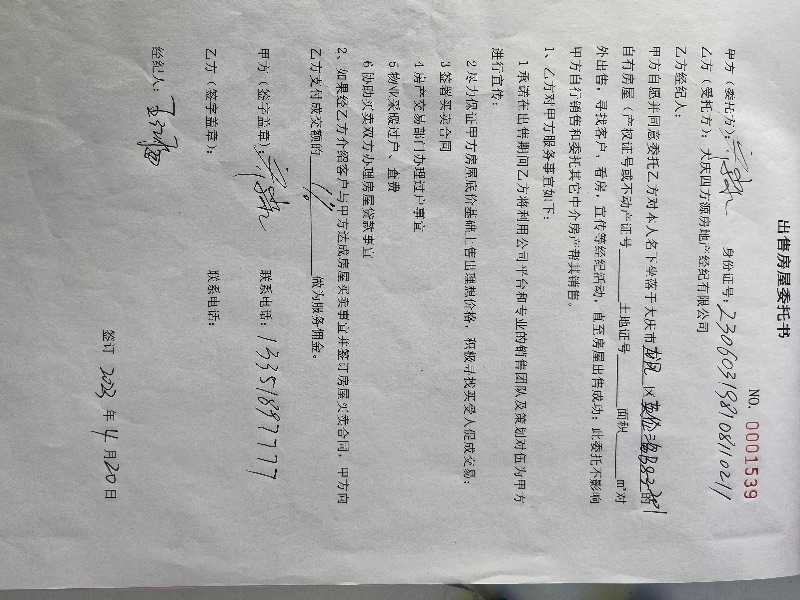 出售房屋委托书
NO. 0001539
甲方（委托方）： 身份证号：230603198108110211
乙方（受托方）：大庆四方源房地产经纪有限公司
乙方经纪人：
甲方自愿并同意委托乙方对本人名下坐落于大庆市龙凤区 的
自有房屋（产权证号或不动产证号 土地证号 面积 m²对
外出售，寻找客户，看房，宣传等经纪活动，直至房屋出售成功；此委托不影响
甲方自行销售和委托其它中介房产帮其销售。
1、乙方对甲方服务事宜如下：
1 承诺在出售期间乙方将利用公司平台和专业的销售团队及策划对伍为甲方
进行宣传：
2 尽力保证甲方房屋底价基础上售出理想价格，积极寻找买受人促成交易；
3 签署买卖合同
4 房产交易部门办理过户事宜
5 物业采暖过户、查费
6 协助买卖双方办理房屋贷款事宜
2、如果经乙方介绍客户与甲方达成房屋买卖事宜并签订房屋买卖合同，甲方向
乙方支付成交额的 1% 做为服务佣金。
甲方（签字盖章）： 联系电话：13351897777
乙方（签字盖章）： 联系电话：
经纪人：
签订 2023 年 4 月 20 日